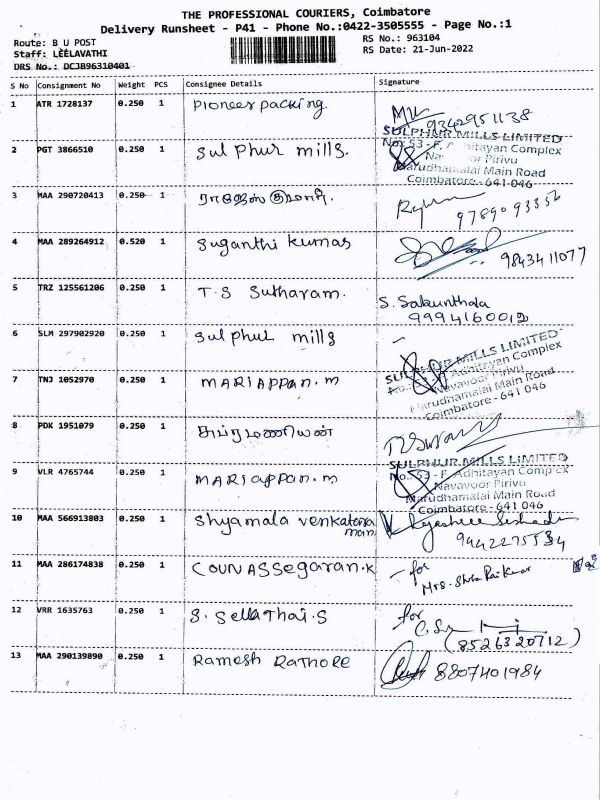 THE PROFESSIONAL COURIERS, Coimbatore
Delivery Runsheet - P41 - Phone No.:0422-3505555 - Page No.:1
Route: B U POST
RS No.: 963104
Staff: LEELAVATHI
RS Date: 21-Jun-2022
DRS No.: DCJB96310401
S No Consignment No Weight PCS Consignee Details Signature
1 ATR 1728137 0.250 1 Pioneer packing.
9342951138
SULPHUR MILLS LIMITED
No. 53 - F, Adhitayan Complex
2 PGT 3866510 0.250 1 Sulphur mills.
Navavoor Pirivu
Marudhamalai Main Road
Coimbatore - 641 046
3 MAA 290720413 0.250 1 ராஜேஸ்குமார்.
4 MAA 289264912 0.520 1 Suganthi kumas
9843411077
5 TRZ 125561206 0.250 1 T.S Sutharam. S. Sakunthala
6 SLM 297902920 0.250 1 Sulphur mills
SULPHUR MILLS LIMITED
7 TNJ 1052970 0.250 1 MARIAPPAN.M
Adhitayan Complex
Navavoor Pirivu
Marudhamalai Main Road
Coimbatore - 641 046
8 PDK 1951079 0.250 1 சுப்ரமணியன்
SULPHUR MILLS LIMITED
9 VLR 4765744 0.250 1 MARIAPPAN.M
No. 53 - F, Adhitayan Complex
Navavoor Pirivu
Marudhamalai Main Road
Coimbatore - 641 046
10 MAA 566913803 0.250 1 Shyamala venkatara
man.
11 MAA 286174838 0.250 1 COUNASSegaran.K for
12 VRR 1635763 0.250 1 S. SellaThai.S for
(8526320712)
13 MAA 290139890 0.250 1 Ramesh RATHORE 8807401984